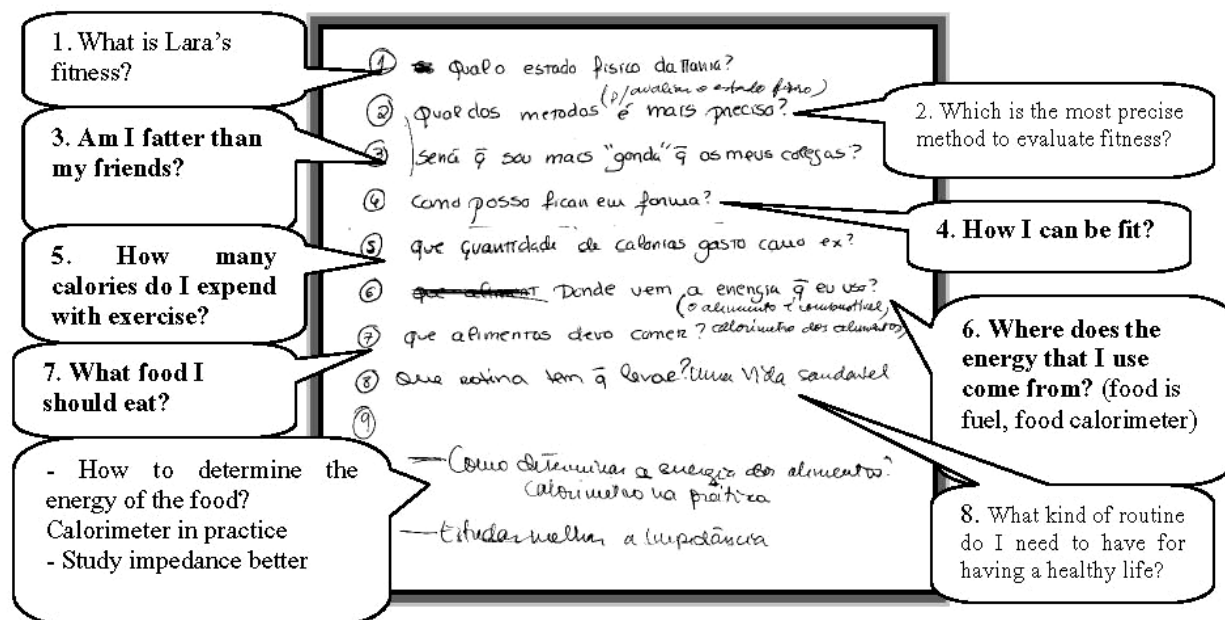 1. What is Lara's
fitness?
3. Am I fatter than
my friends?
5. How many
calories do I expend
with exercise?
7. What food I
should eat?
- How to determine the
energy of the food?
Calorimeter in practice
- Study impedance better
① Qual o estado físico da
(p/avaliar o estado físico)
② Qual dos metodos é mais preciso?
③ Será q̄ sou mais "gorda" q̄ os meus colegas?
④ Como posso ficar em forma?
⑤ que quantidade de calorias gasto ex?
⑥ Donde vem a energia q̄ eu uso?
(o alimento é combustível,
⑦ que alimentos devo comer? calorimetro dos alimentos)
⑧ Que rotina tem q̄ levar? Uma vida saudavel
⑨
— Como determinar a energia dos alimentos?
Calorimetro na prática
— Estudar melhor a impedância
2. Which is the most precise
method to evaluate fitness?
4. How I can be fit?
6. Where does the
energy that I use
come from? (food is
fuel, food calorimeter)
8. What kind of routine
do I need to have for
having a healthy life?